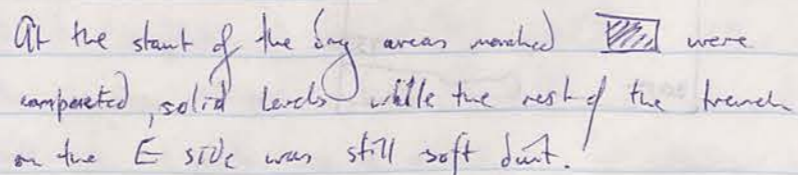 At the start of the day areas marked were
compacted, solid levels while the rest of the trench
on the E side was still soft dirt.